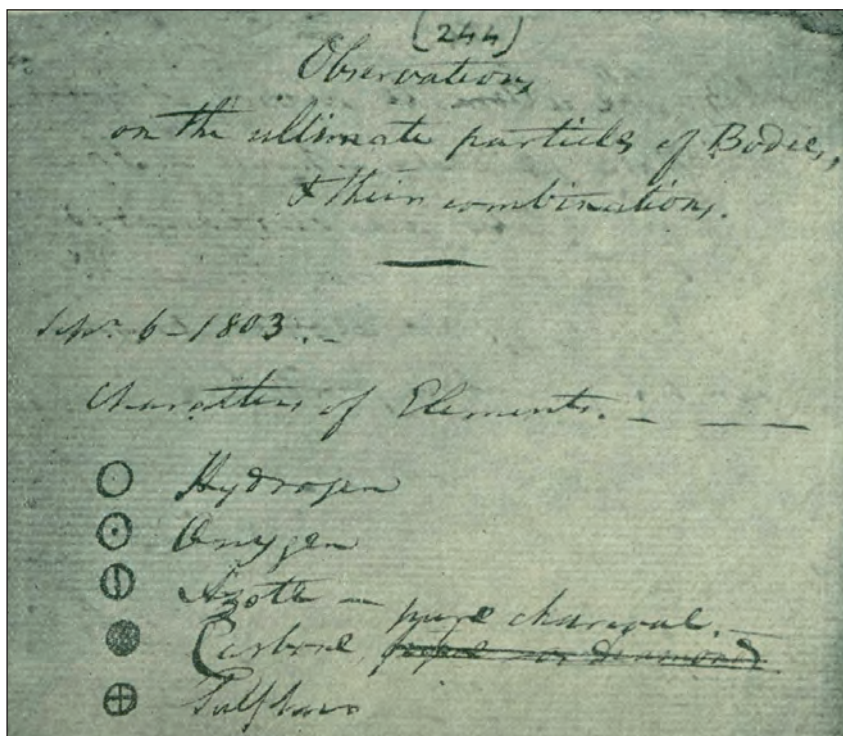 (244)
Observations
on the ultimate particles of Bodies,
& their combinations.
Sepr. 6 - 1803. -
Characters of Elements. - - -
Hydrogen
Oxygen
Azote -
pure charcoal. -
Carbone,
Sulphur